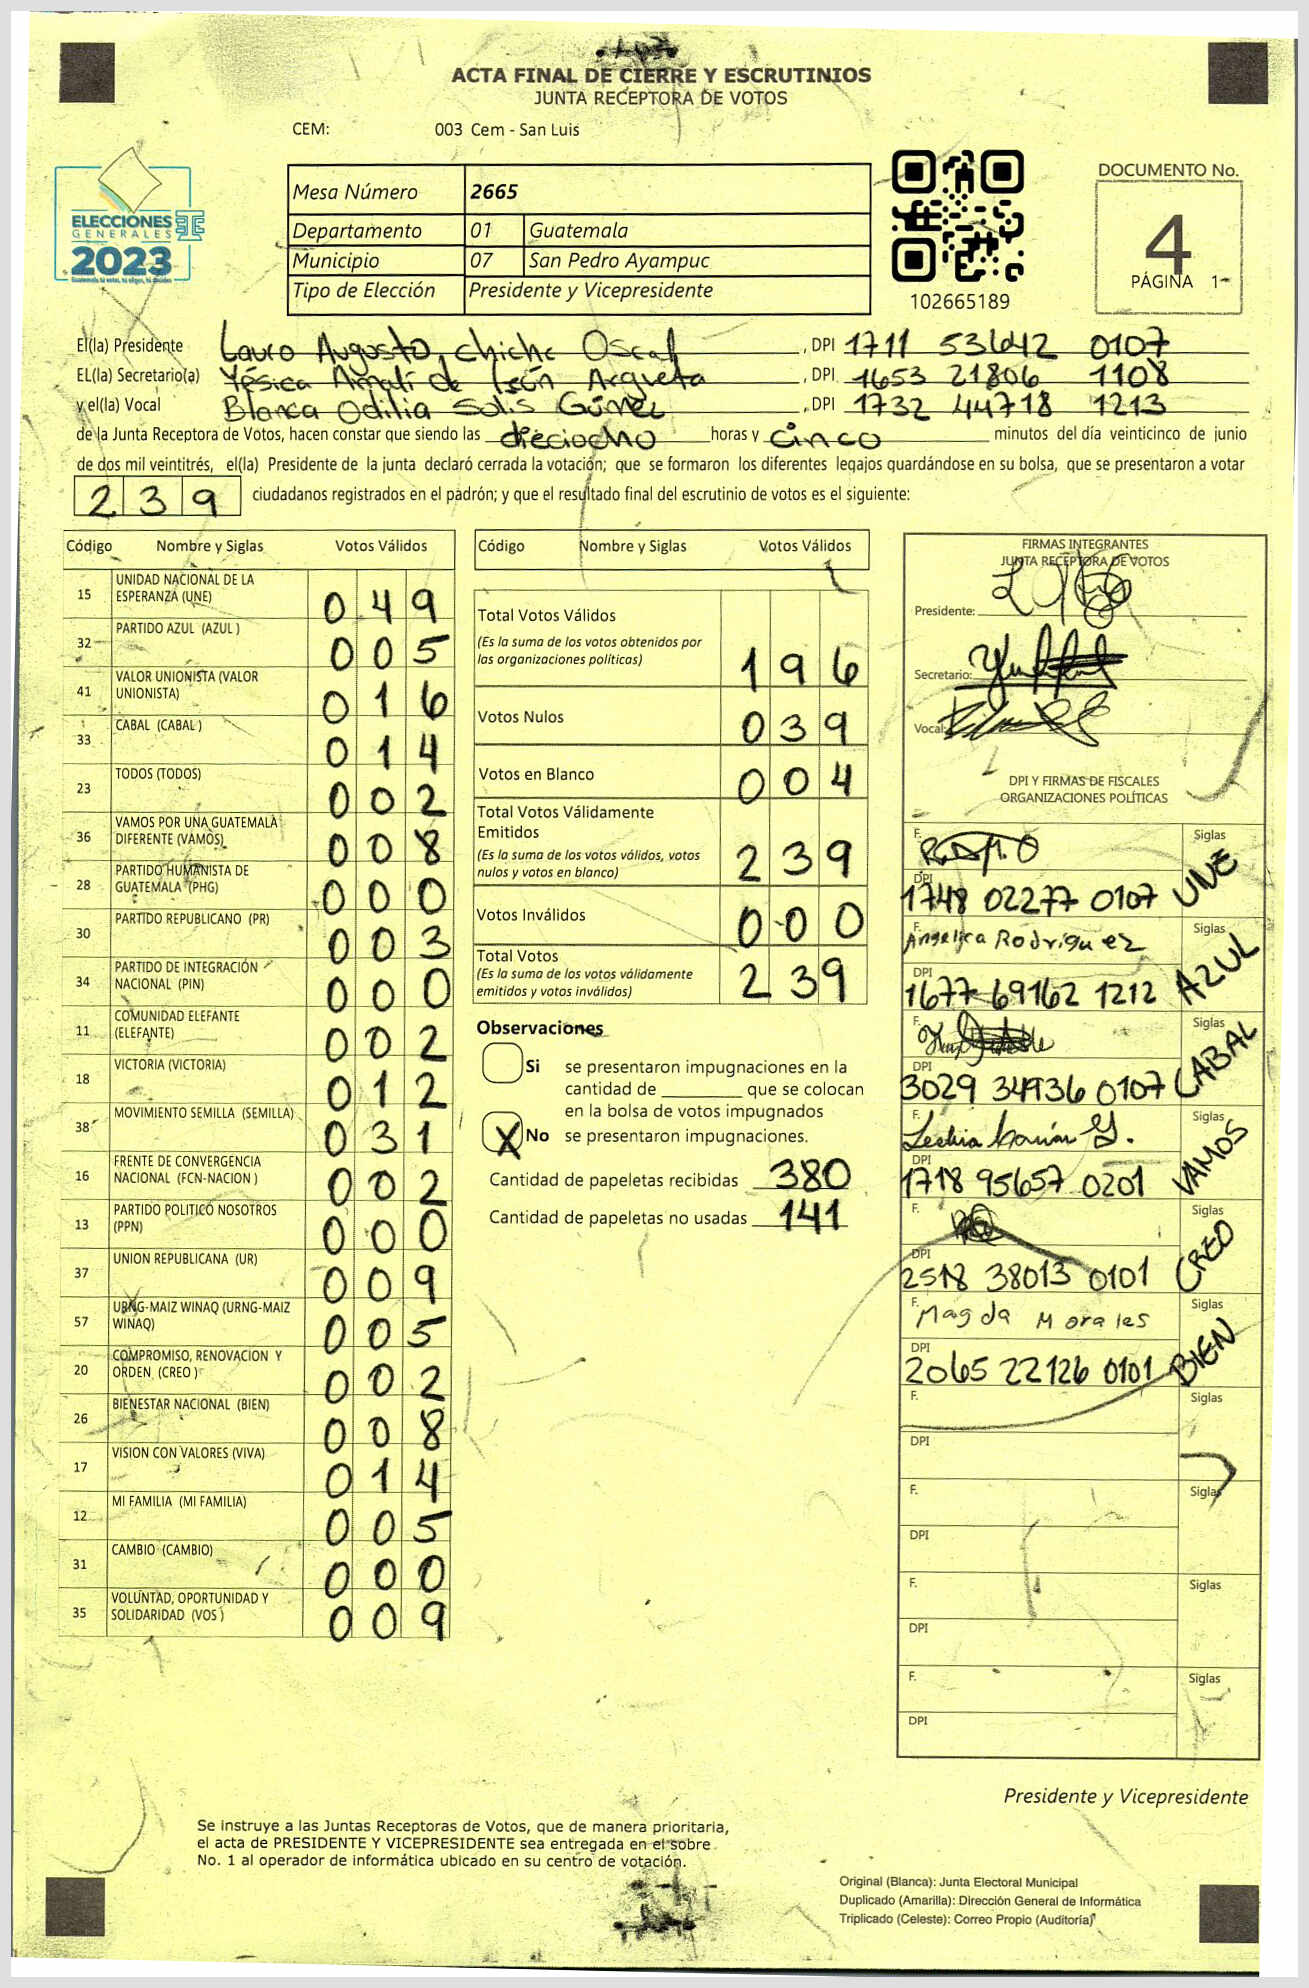 ACTA FINAL DE CIERRE Y ESCRUTINIOS
JUNTA RECEPTORA DE VOTOS
CEM: 003 Cem - San Luis
ELECCIONES
GENERALES
2023
Mesa Número 2665
Departamento 01 Guatemala
Municipio 07 San Pedro Ayampuc
Tipo de Elección Presidente y Vicepresidente
102665189
DOCUMENTO No.
4
PÁGINA 1
El(la) Presidente Lauro Augusto, Chiche Oscal, DPI 1711 53642 0107
EL(la) Secretario(a) Yésica Amalí de León Argueta, DPI 1653 21806 1108
y el(la) Vocal Blanca Odilia Solis Gómez, DPI 1732 44718 1213
de la Junta Receptora de Votos, hacen constar que siendo las dieciocho horas y cinco minutos del día veinticinco de junio
de dos mil veintitrés, el(la) Presidente de la junta declaró cerrada la votación; que se formaron los diferentes legajos quardándose en su bolsa, que se presentaron a votar
239 ciudadanos registrados en el padrón; y que el resultado final del escrutinio de votos es el siguiente:
Código Nombre y Siglas Votos Válidos
15 UNIDAD NACIONAL DE LA ESPERANZA (UNE) 049
32 PARTIDO AZUL (AZUL ) 005
41 VALOR UNIONISTA (VALOR UNIONISTA) 016
33 CABAL (CABAL ) 014
23 TODOS (TODOS) 002
36 VAMOS POR UNA GUATEMALA DIFERENTE (VAMOS) 008
28 PARTIDO HUMANISTA DE GUATEMALA (PHG) 000
30 PARTIDO REPUBLICANO (PR) 003
34 PARTIDO DE INTEGRACIÓN NACIONAL (PIN) 000
11 COMUNIDAD ELEFANTE (ELEFANTE) 002
18 VICTORIA (VICTORIA) 012
38 MOVIMIENTO SEMILLA (SEMILLA) 031
16 FRENTE DE CONVERGENCIA NACIONAL (FCN-NACION ) 002
13 PARTIDO POLITICO NOSOTROS (PPN) 000
37 UNION REPUBLICANA (UR) 009
57 URNG-MAIZ WINAQ (URNG-MAIZ WINAQ) 005
20 COMPROMISO, RENOVACION Y ORDEN (CREO ) 002
26 BIENESTAR NACIONAL (BIEN) 008
17 VISION CON VALORES (VIVA) 014
12 MI FAMILIA (MI FAMILIA) 005
31 CAMBIO (CAMBIO) 000
35 VOLUNTAD, OPORTUNIDAD Y SOLIDARIDAD (VOS ) 009
Código Nombre y Siglas Votos Válidos
Total Votos Válidos
(Es la suma de los votos obtenidos por
las organizaciones políticas) 196
Votos Nulos 039
Votos en Blanco 004
Total Votos Válidamente
Emitidos
(Es la suma de los votos válidos, votos
nulos y votos en blanco) 239
Votos Inválidos 000
Total Votos
(Es la suma de los votos válidamente
emitidos y votos inválidos) 239
Observaciones
Si se presentaron impugnaciones en la
cantidad de ________ que se colocan
en la bolsa de votos impugnados
X No se presentaron impugnaciones.
Cantidad de papeletas recibidas 380
Cantidad de papeletas no usadas 141
FIRMAS INTEGRANTES
JUNTA RECEPTORA DE VOTOS
Presidente:
Secretario:
Vocal:
DPI Y FIRMAS DE FISCALES
ORGANIZACIONES POLÍTICAS
F. Siglas
DPI 1748 02277 0107 UNE
F. Angelica Rodriguez Siglas
DPI 1677 69162 1212 AZUL
F. Siglas
DPI 3029 34936 0107 CABAL
F. Siglas
DPI 1718 95657 0201 VAMOS
F. Siglas
DPI 2518 38013 0101 CREO
F. Magda Morales Siglas
DPI 2065 22126 0101 BIEN
F. Siglas
DPI
F. Siglas
DPI
F. Siglas
DPI
F. Siglas
DPI
Presidente y Vicepresidente
Se instruye a las Juntas Receptoras de Votos, que de manera prioritaria,
el acta de PRESIDENTE Y VICEPRESIDENTE sea entregada en el sobre
No. 1 al operador de informática ubicado en su centro de votación.
Original (Blanca): Junta Electoral Municipal
Duplicado (Amarilla): Dirección General de Informática
Triplicado (Celeste): Correo Propio (Auditoría)